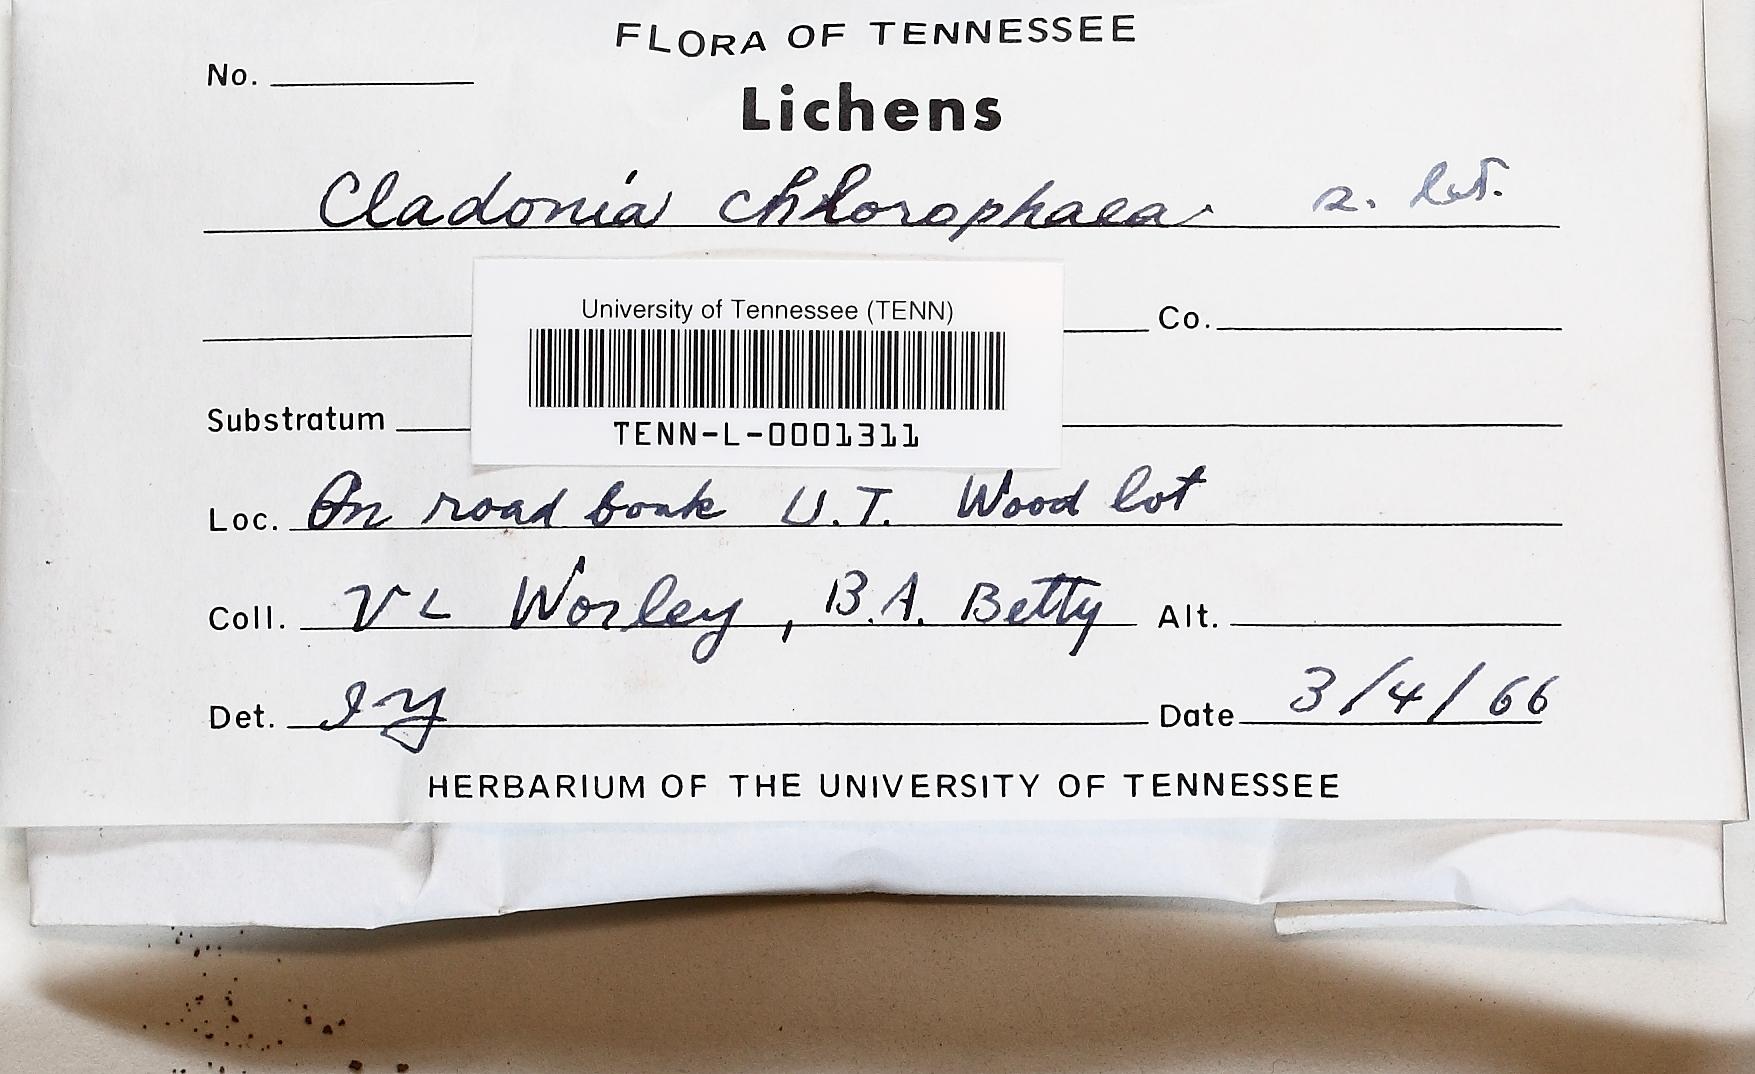 FLORA OF TENNESSEE
No.
Lichens
Cladonia chlorophaea s. lat.
University of Tennessee (TENN)
Co.
TENN-L-0001311
Substratum
Loc. On road bank U.T. Wood lot
Coll. V L Worley, B.A. Betty Alt.
Det. Date 3/4/66
HERBARIUM OF THE UNIVERSITY OF TENNESSEE